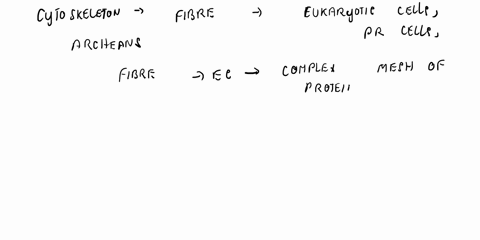 CYTOSKELETON → FIBRE → EUKARYOTIC CELLS,
PR CELLS,
ARCHEANS
FIBRE → EC → COMPLEX MESH OF
PROTEI